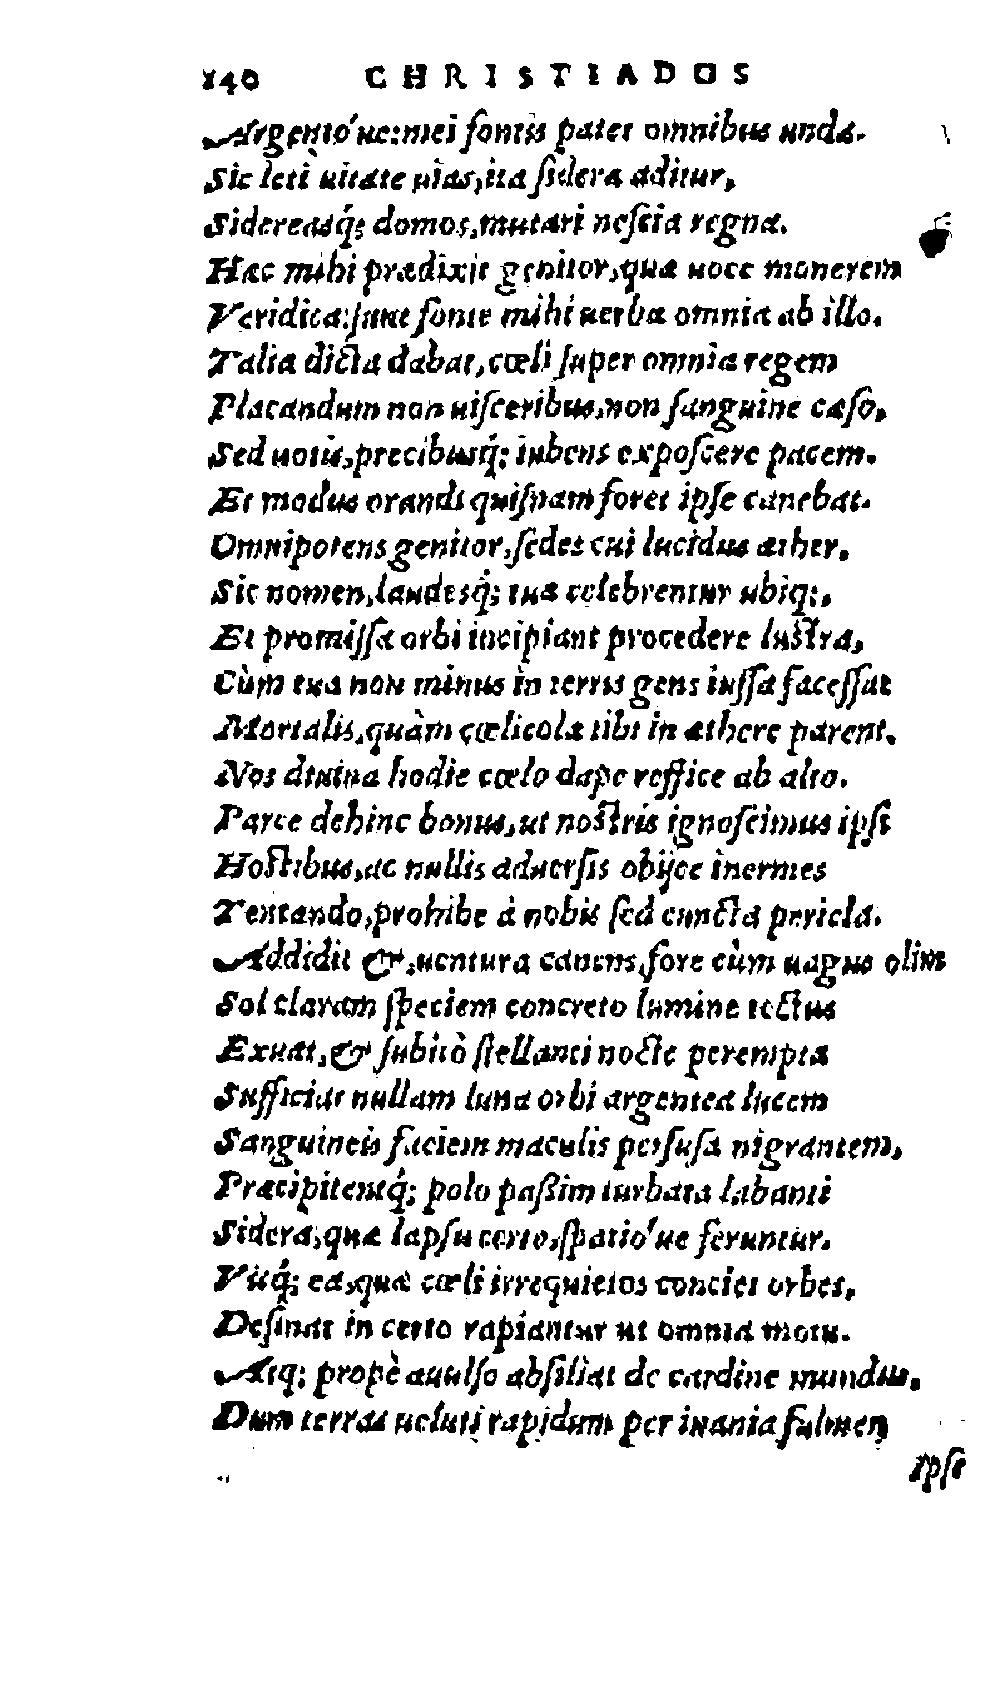 140 CHRISTIADOS
Argento'ue: mei fontis patet omnibus unda.
Sic leti uitate uias, ita sidera aditur,
Sidereasq́; domos, mutari nescia regna.
Hæc mihi prædixit genitor, quæ uoce monerem
Veridica: sunt fonte mihi uerba omnia ab illo.
Talia dicta dabat, cœli super omnia regem
Placandum non uisceribus, non sanguine cæso,
Sed uotis, precibusq́; iubens exposcere pacem.
Et modus orandi quisnam foret ipse canebat.
Omnipotens genitor, sedes cui lucidus æther,
Sic nomen, laudesq́; tuæ celebrentur ubiq;,
Et promissa orbi incipiant procedere lustra,
Cùm tua non minus in terris gens iussa facessat
Mortalis, quàm cœlicolæ tibi in æthere parent.
Nos diuina hodie cœlo dape reffice ab alto.
Parce dehinc bonus, ut nostris ignoscimus ipsi
Hostibus, ac nullis aduersis obijce inermes
Tentando, prohibe à nobis sed cuncta pericla.
Addidit &, uentura canens, fore cùm uagus olim
Sol claram speciem concreto lumine tectus
Exuat, & subitò stellanti nocte perempta
Sufficiat nullam luna orbi argentea lucem
Sanguineis faciem maculis perfusa nigrantem,
Præcipitentq́; polo paßim turbata labanti
Sidera, quæ lapsu certo, spatio'ue feruntur.
Vitq́; ea, quæ cœli irrequietos conciet orbes,
Desinat in certo rapiantur ut omnia motu.
Atq; propè auulso absiliat de cardine mundus,
Dum terras ueluti rapidum per inania fulmen
Ipse